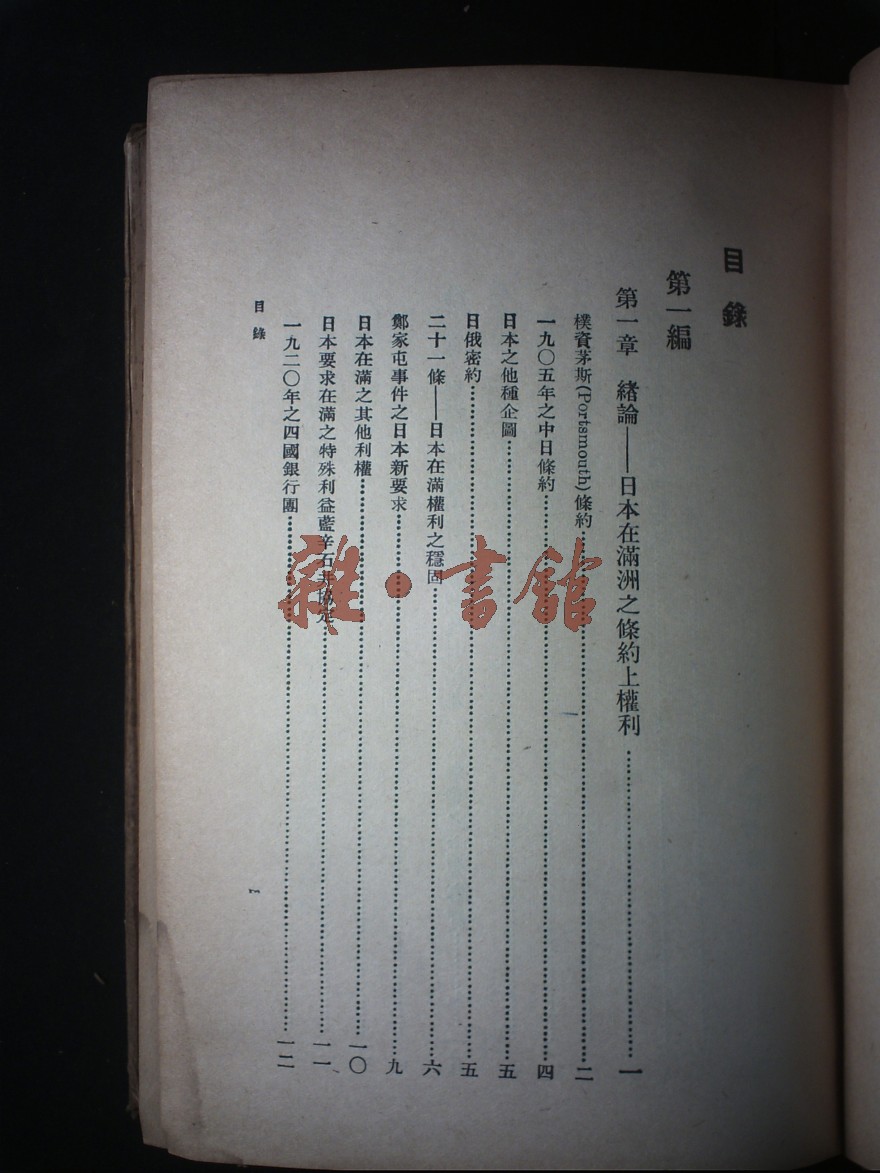 目錄
第一編
第一章　緒論——日本在滿洲之條約上權利……一
樸資茅斯(Portsmouth)條約……二
一九〇五年之中日條約……四
日本之他種企圖……五
日俄密約……五
二十一條——日本在滿權利之穩固……六
鄭家屯事件之日本新要求……九
日本在滿之其他利權……一〇
日本要求在滿之特殊利益藍辛石井協定……一一
一九二〇年之四國銀行團……一二
目錄
一
雜·書館